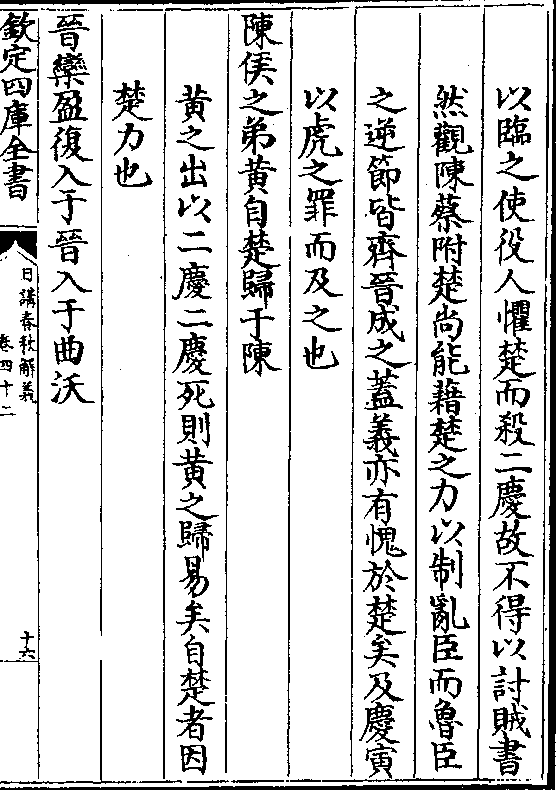 以臨之使役人懼楚而殺二慶故不得以討賊書
然觀陳蔡附楚尚能藉楚之力以制亂臣而魯臣
之逆節皆齊晉成之蓋義亦有愧於楚矣及慶寅
以虎之罪而及之也
陳侯之弟黄自楚歸于陳
黄之出以二慶二慶死則黄之歸易矣自楚者因
楚力也
晉欒盈復入于晉入于曲沃
欽定四庫全書
日講春秋解義
卷四十二
十六